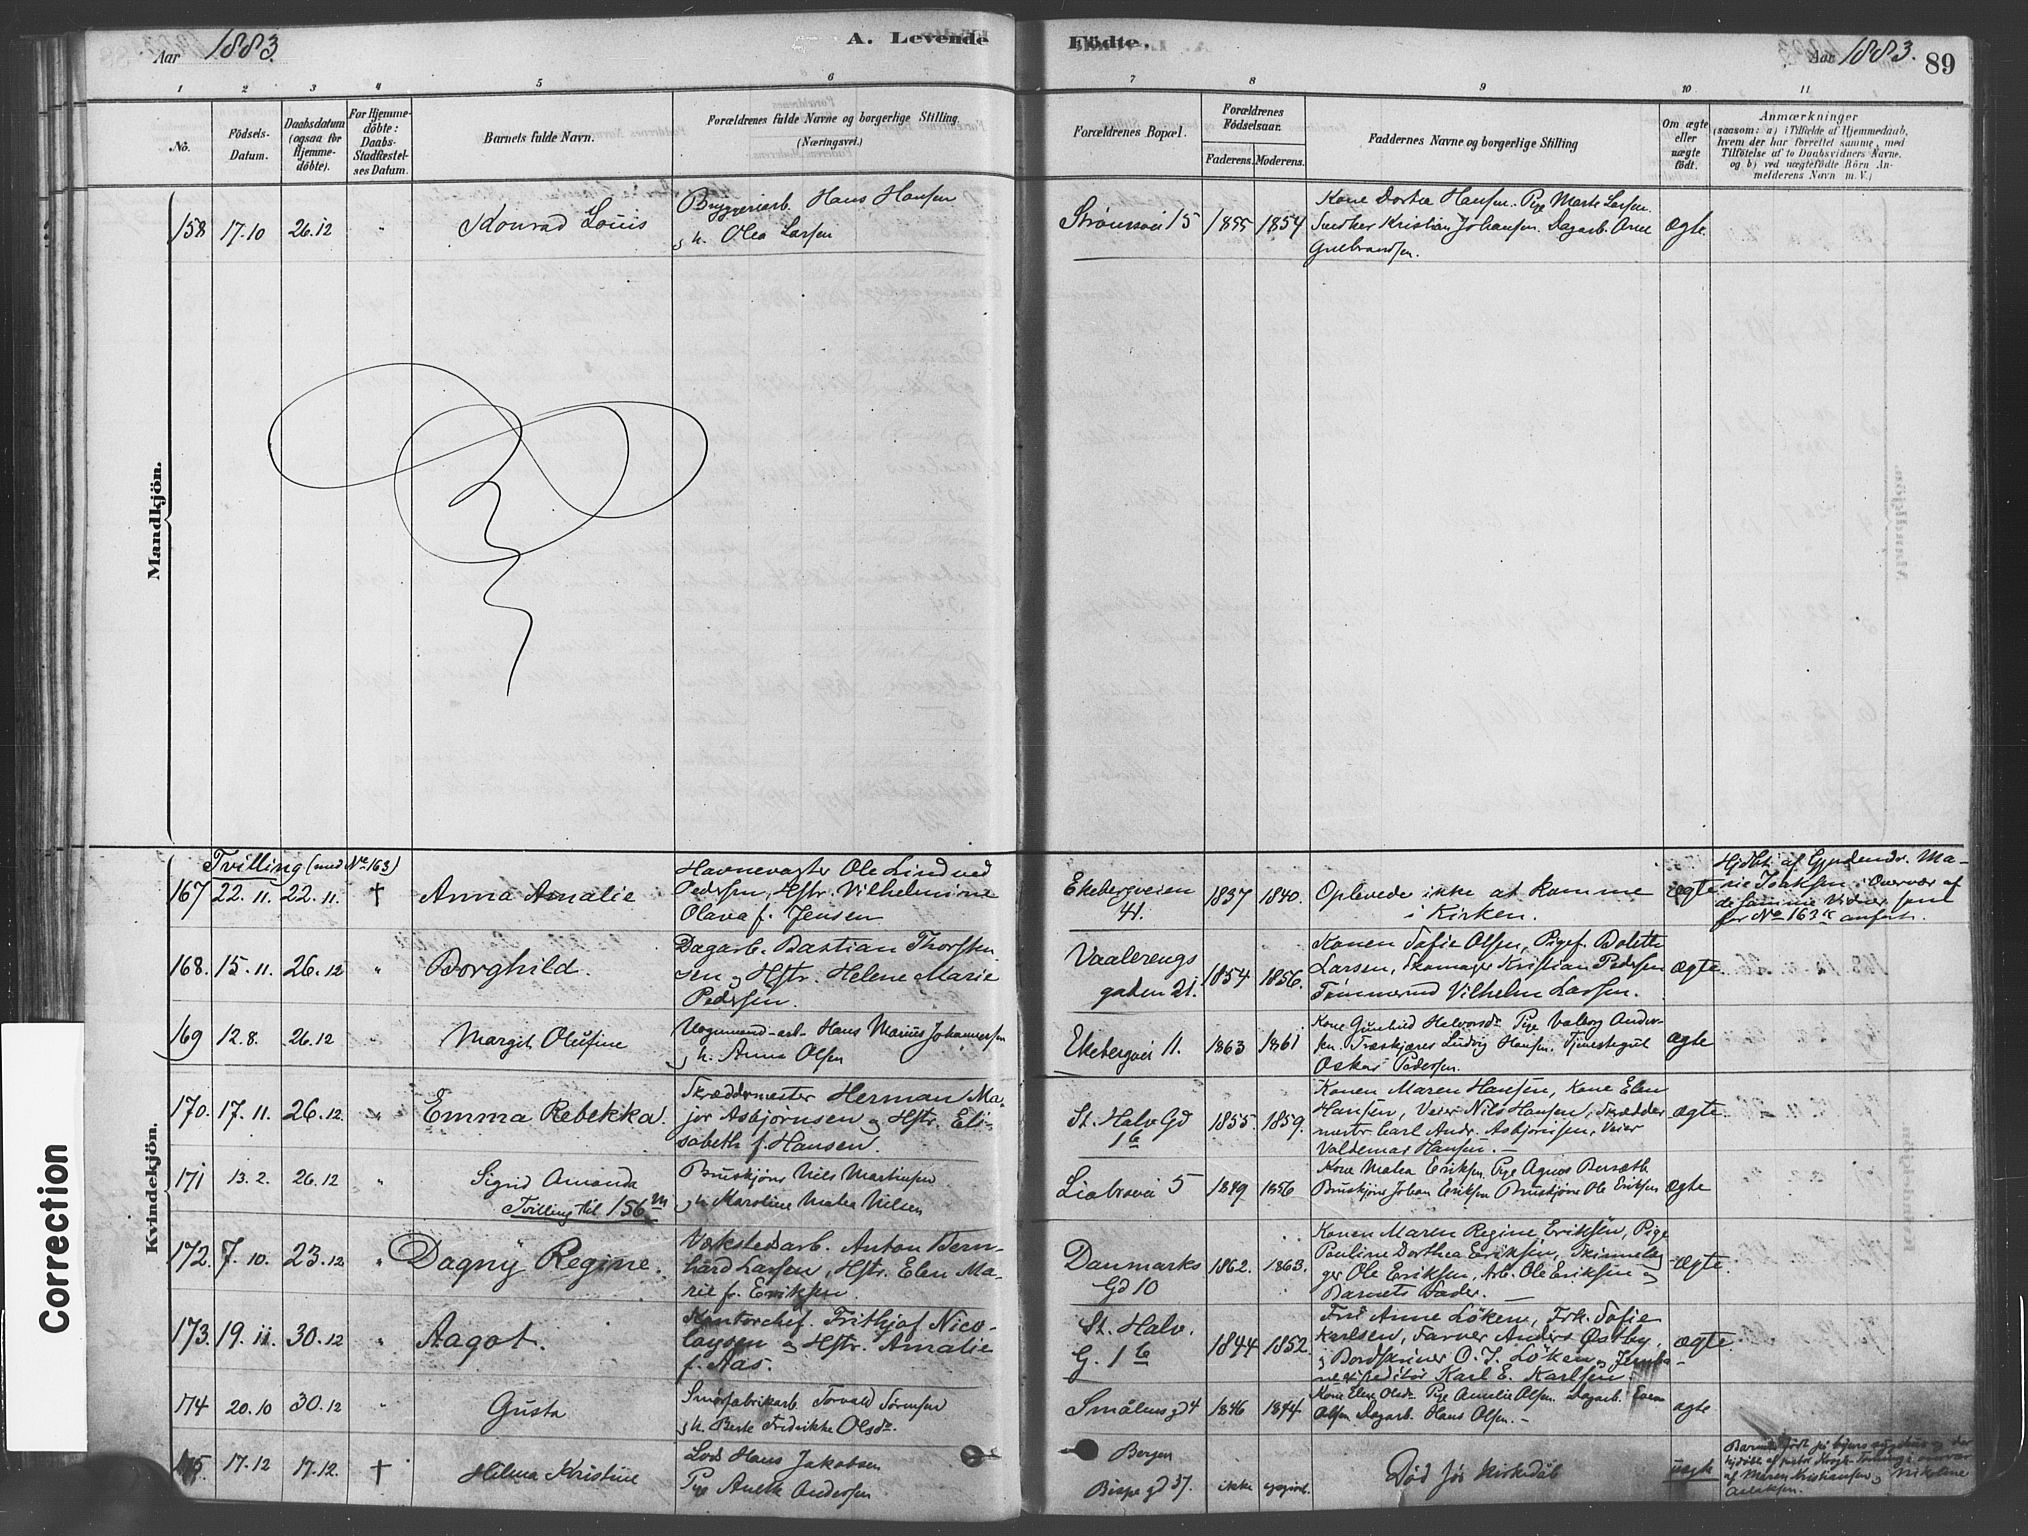 Aar 1883.
A. Levende
Födte.
Aar 1883.
89
1 2 3 4 5 6 7 8 9 10 11
No.
Födsels-
Datum.
Daabsdatum
(ogsaa for
Hjemme-
döbte).
For Hjemme-
döbte:
Daabs-
Stadfæstel-
ses Datum.
Barnets fulde Navn.
Forældrenes fulde Navne og borgerlige Stilling.
(Næringsvei.)
Forældrenes Bopæl.
Forældrenes
Födselsaar.
Faderens. Moderens.
Faddernes Navne og borgerlige Stilling
Om ægte
eller
uægte
födt.
Anmærkninger
(saasom: a) i Tilfælde af Hjemmedaab,
hvem der har forrettet samme, med
Tilföielse af to Daabsvidners Navne.
og b) ved uægtefödte Börn An-
melderens Navn m. V.)
Mandkjön.
158 17.10 26.12 " Konrad Louis
Bryggeriarb. Hans Hansen
og h. Olea Larsen
Strömsvei 15 1855 1854
Kone Dortea Hansen. Pige Marte Larsen.
Snedker Kristian Johansen. Dagarb. Arne
Gulbrandsen.
ægte
Kvindekjön.
Tvilling (med No 163)
167 22.11. 22.11. † Anna Amalie
Havnevogter Ole Lindved
Pedersen, Hstr. Vilhelmine
Olava f. Jensen
Ekebergveien
41.
1837 1840.
Oplevede ikke at komme
i Kirken.
ægte
Hjdbt. af Gjordemdr. Ma-
rie Isaksen. Overvær af
de samme Vidner som
for No 163 anført.
168. 15.11. 26.12 " Borghild.
Dagarb. Bastian Thorsten-
sen og Hstr. Helene Marie
Pedersen.
Vaalerengs
gaden 21.
1854 1856.
Konen Sofie Olsen, Pigef. Bolette
Larsen, Skomager Kristian Pedersen
Tømmermd Vilhelm Larsen.
ægte.
169 12.8. 26.12 " Margit Olufine
Hans Marius Johannessen
og h. Anna Olsen
Ekebergvei 11. 1863 1861
Kone Gunhild Halvorsdr. Pige Valborg Ander-
sen. Træskjærer Ludvig Hansen. Tjenestegut
Oskar Pedersen.
ægte
170. 17.11. 26.12. " Emma Rebekka.
Skræddermester Herman Ma-
jor Asbjørnsen og Hstr. Eli-
sabeth f. Hansen.
St. Halv Gd
1b
1855. 1859.
Konen Maren Hansen, Kone Elen
Hansen, Veier Nils Hansen, Skrædder
mestr. Carl Andr. Asbjørnsen, Veier
Valdemar Hansen. —
ægte.
171 13.2. 26.12 " Sigrid Amanda
Tvilling til 156 m
Bruskjörer Nils Martinsen
og h. Karoline Matea Nilsen
Liabrovei 5 1849 1856
Kone Matea Eriksen. Pige Agnes
Bruskjörer Johan Eriksen Bruskjörer Ole Eriksen
ægte
172. 7.10. 23.12 " Dagny Regine.
Værkstedsarb. Anton Bern-
hard Larsen, Hstr. Elen Ma-
rie f. Eriksen.
Danmarks
Gd 10
1862. 1863.
Konen Maren Regine Eriksen, Pige
Pauline Dorthea Eriksen,
ger Ole Eriksen, Arb. Ole Eriksen og
Barnets Fader. —
ægte.
173. 19.11. 30.12 " Aagot.
Kontorchef. Frithjof Nico-
laysen og Hstr. Amalie
f. Aas.
St. Halv.
G. 1b
1844 1852.
Fru Anne Löken, Frk. Sofie
Karlsen, Farver Anders Østby,
O. I. Löken og Jernba-
neexpeditör Karl E. Karlsen.
ægte.
174 20.10 30.12 " Gusta
Smörfabrikarb. Torvald Sörensen
og h. Berte Fredrikke Olsdr.
Smålensgd 4 1846 1844
Kone Elise Olsdr. Pige Amelie Olsen. Dagarb. Even
Olsen Dagarb. Hans Olsen. —
ægte
175 17.12 17.12. † Hilma Kristine
Lods Hans Jakobsen
Pige Anette Andersen
Bergen
Bispegd 37. ikke opgivet.
Död för Kirkedåb
uægte
af Maren Kristiansen og Nikoline
Correction